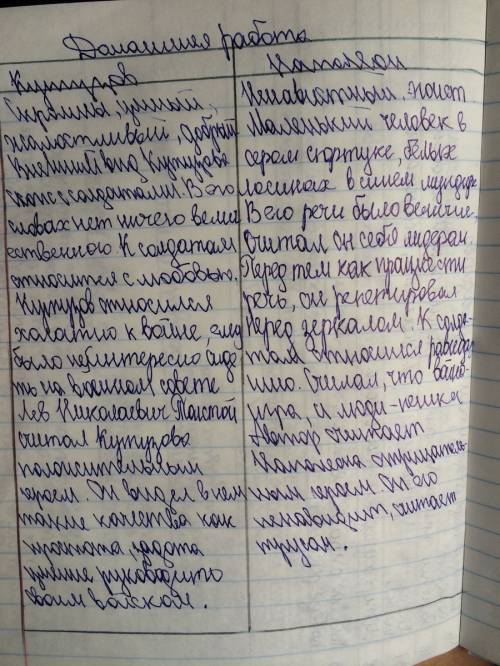 Домашняя работа
Кутузов
Скромный, умный,
жалостливый, добрый
Внешний вид Кутузова
с солдатами. В его
словах нет ничего вели
ественного К солдатам
относится с любовью.
Кутузов относился
халатно к войне, ему
было неинтересно сиде
ть на военном совете
Лев Николаевич Толстой
считал Кутузова
положительным
героем. Он видел в нем
такие качества как
простота,
умение руководить
своим войском.
Наполеон
Маленький человек в
сером сюртуке, белых
лосинах в синем мундире
В его речи было величие.
Считал он себя лидером
Перед тем как произнести
речь, он репетировал
перед зеркалом К солда
там относился равноду
шно. Считал, что война-
игра, а люди-пешки
Автор считает
Наполеона отрицатель
ным героем. Он его
ненавидит, считает
трусом.